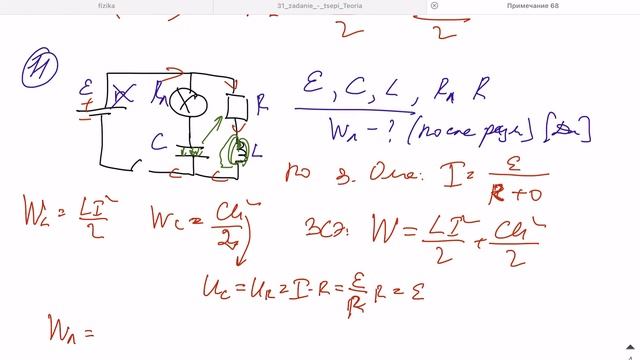 fizika
31_zadanie_-_tsepi_Teoria
Примечание 68
2
2
11
ε
Rл
R
C
L
ε, C, L, Rл R
Wл - ? (после разм) [Дж]
по з. Ома: I = ε / R+0
W_L = LI² / 2
W_C = CU² / 2
ЗСЭ: W = LI² / 2 + CU² / 2
U_C = U_R = I·R = ε/R R = ε
Wл =